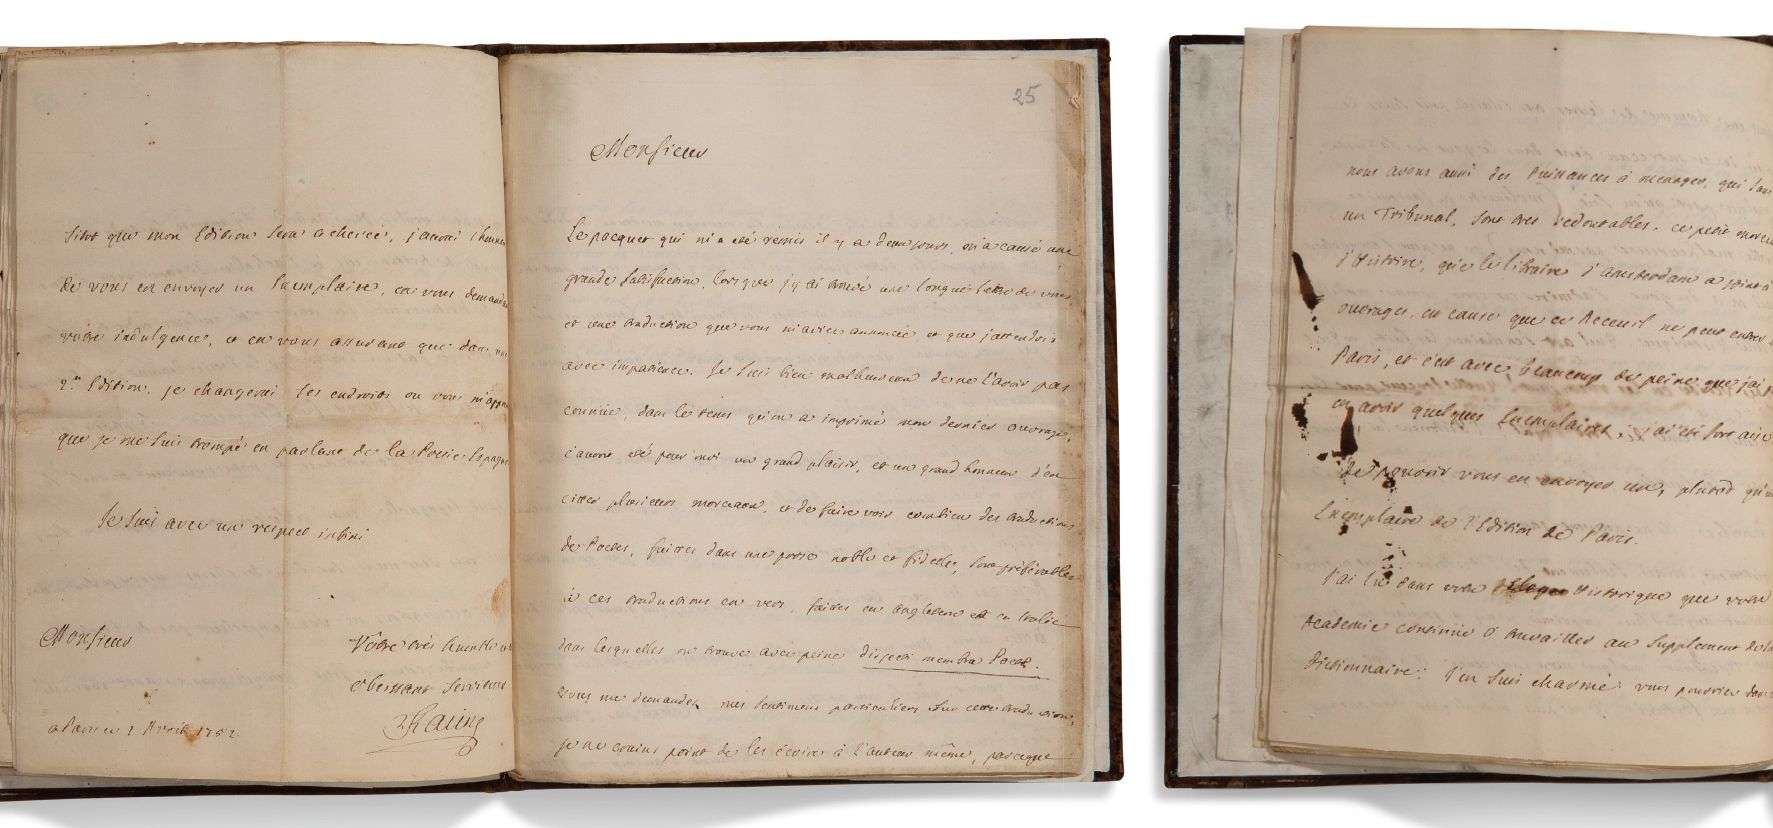 sitôt que mon Edition sera achevée, j'aurai l'honneur
de vous en envoyer un Exemplaire, en vous demandant
votre indulgence, et en vous assurant que dans une
2.de Edition, je changerai les endroits ou vous m'appr
que je me suis trompé en parlant de la Poesie Espagn
Je suis avec un respect infini
Monsieur
Vôtre très humble et
obeissant serviteur
Racine
a Paris ce 2 Avril 1752
25
Monsieur
Le pacquet qui m'a été remis il y a deux jours, m'a causé une
grande satisfaction, lorsque j'y ai trouvé une longue lettre de vous,
et une traduction que vous m'aviez annoncée et que j'attendois
avec impatience. Je suis bien malheureux de ne l'avoir pas
connüe, dans le tems qu'on a imprimé mon dernier ouvrage,
c'auroit été pour moi un grand plaisir, et un grand honneur d'en
citer plusieurs morceaux, et de faire voir combien des traductions
de Poetes, faittes dans une prose noble et fidelle, sont préférables
à ces traductions en vers, faites en angleterre et en Italie
dans lesquelles on trouve avec peine disjecti membra Poetæ.
vous me demandez mes sentimens particuliers sur cette traduction,
je ne crains point de les écrire à l'auteur même, parceque
nous avons aussi des Puissances à menager, qui dans
un Tribunal, sont tres redoutables. ce petit morceau
d'Histoire, que le libraire d'Amsterdam a joint à
ouvrages, en cause que ce Receuil ne peut entrer
Paris, et c'est avec beaucoup de peine que j'ai p
en avoir quelques Exemplaires. j'ai été fort aise
de pouvoir vous en envoyer un, plutôt qu'un
Exemplaire de l'Edition de Paris.
J'ai lu dans votre Historique que votre
Academie continue à travailler au supplement de la
Dictionnaire: j'en suis charmé: vous pourriez dans